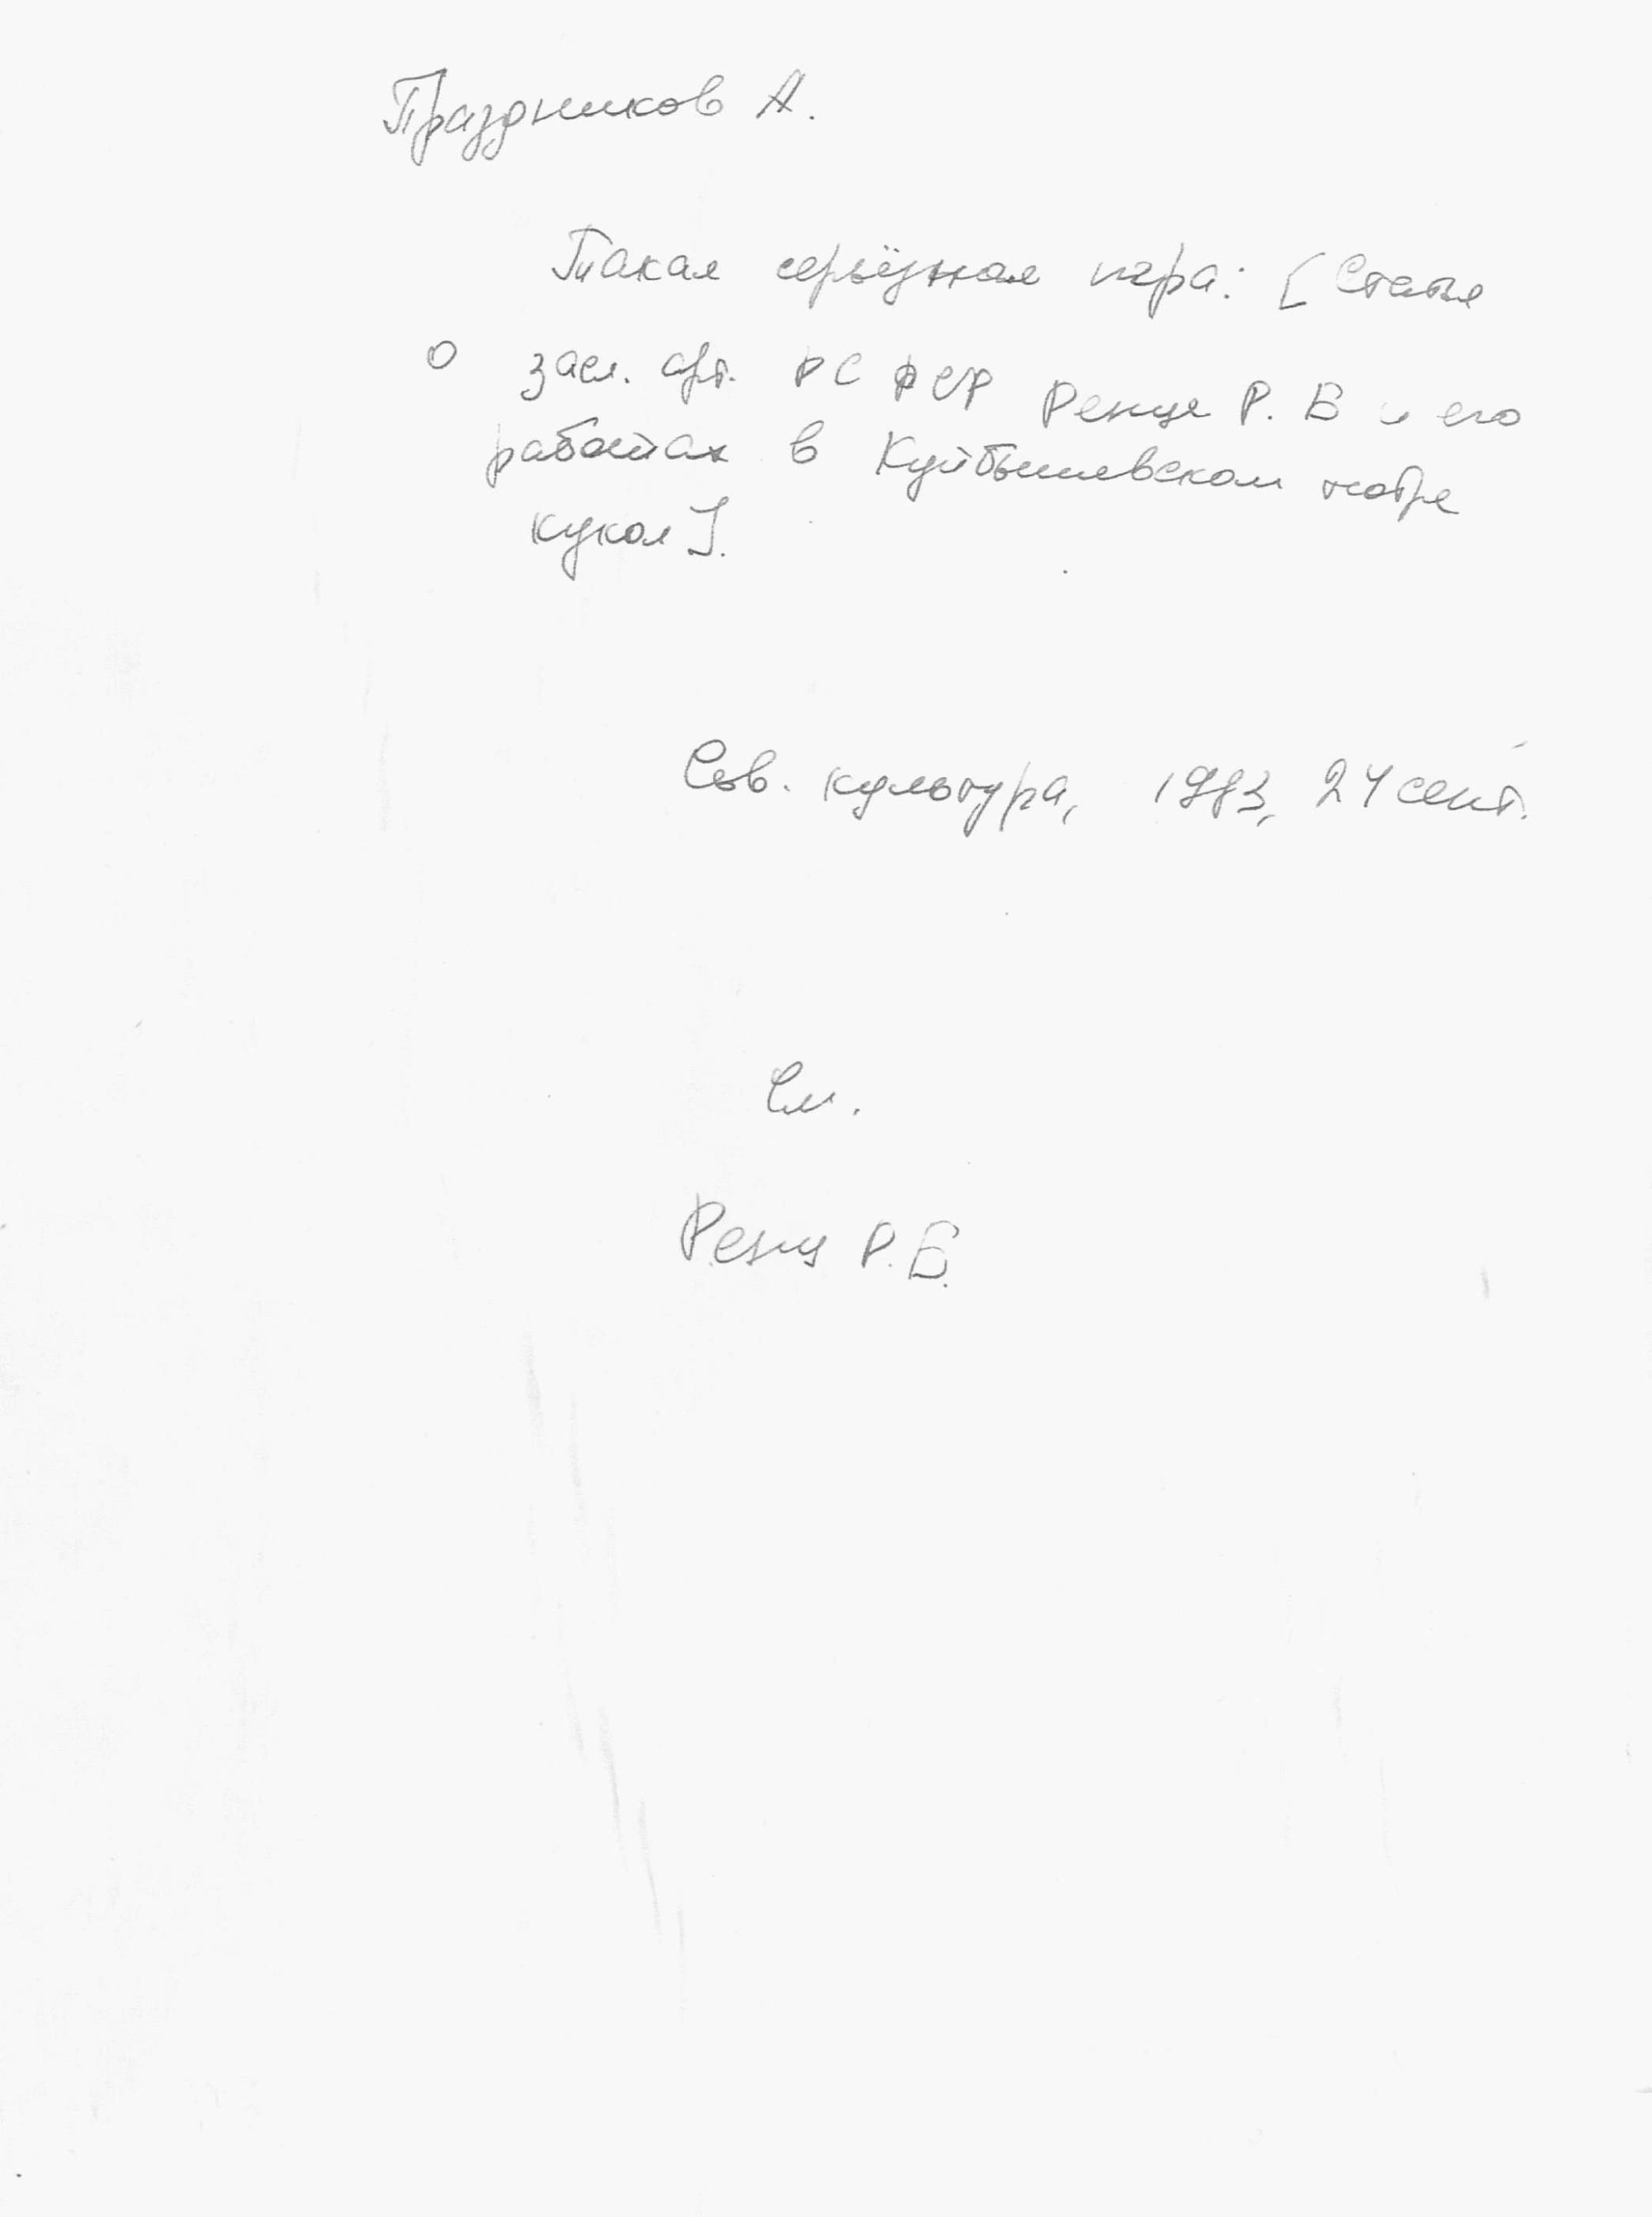 Праздников А.
Такая серьёзная игра: [Статья
о засл. арт. РСФСР Ренце Р. Б и его
работах в Куйбышевском театре
кукол].
Сов. культура, 1983, 24 сент.
См.
Ренц Р.Б.